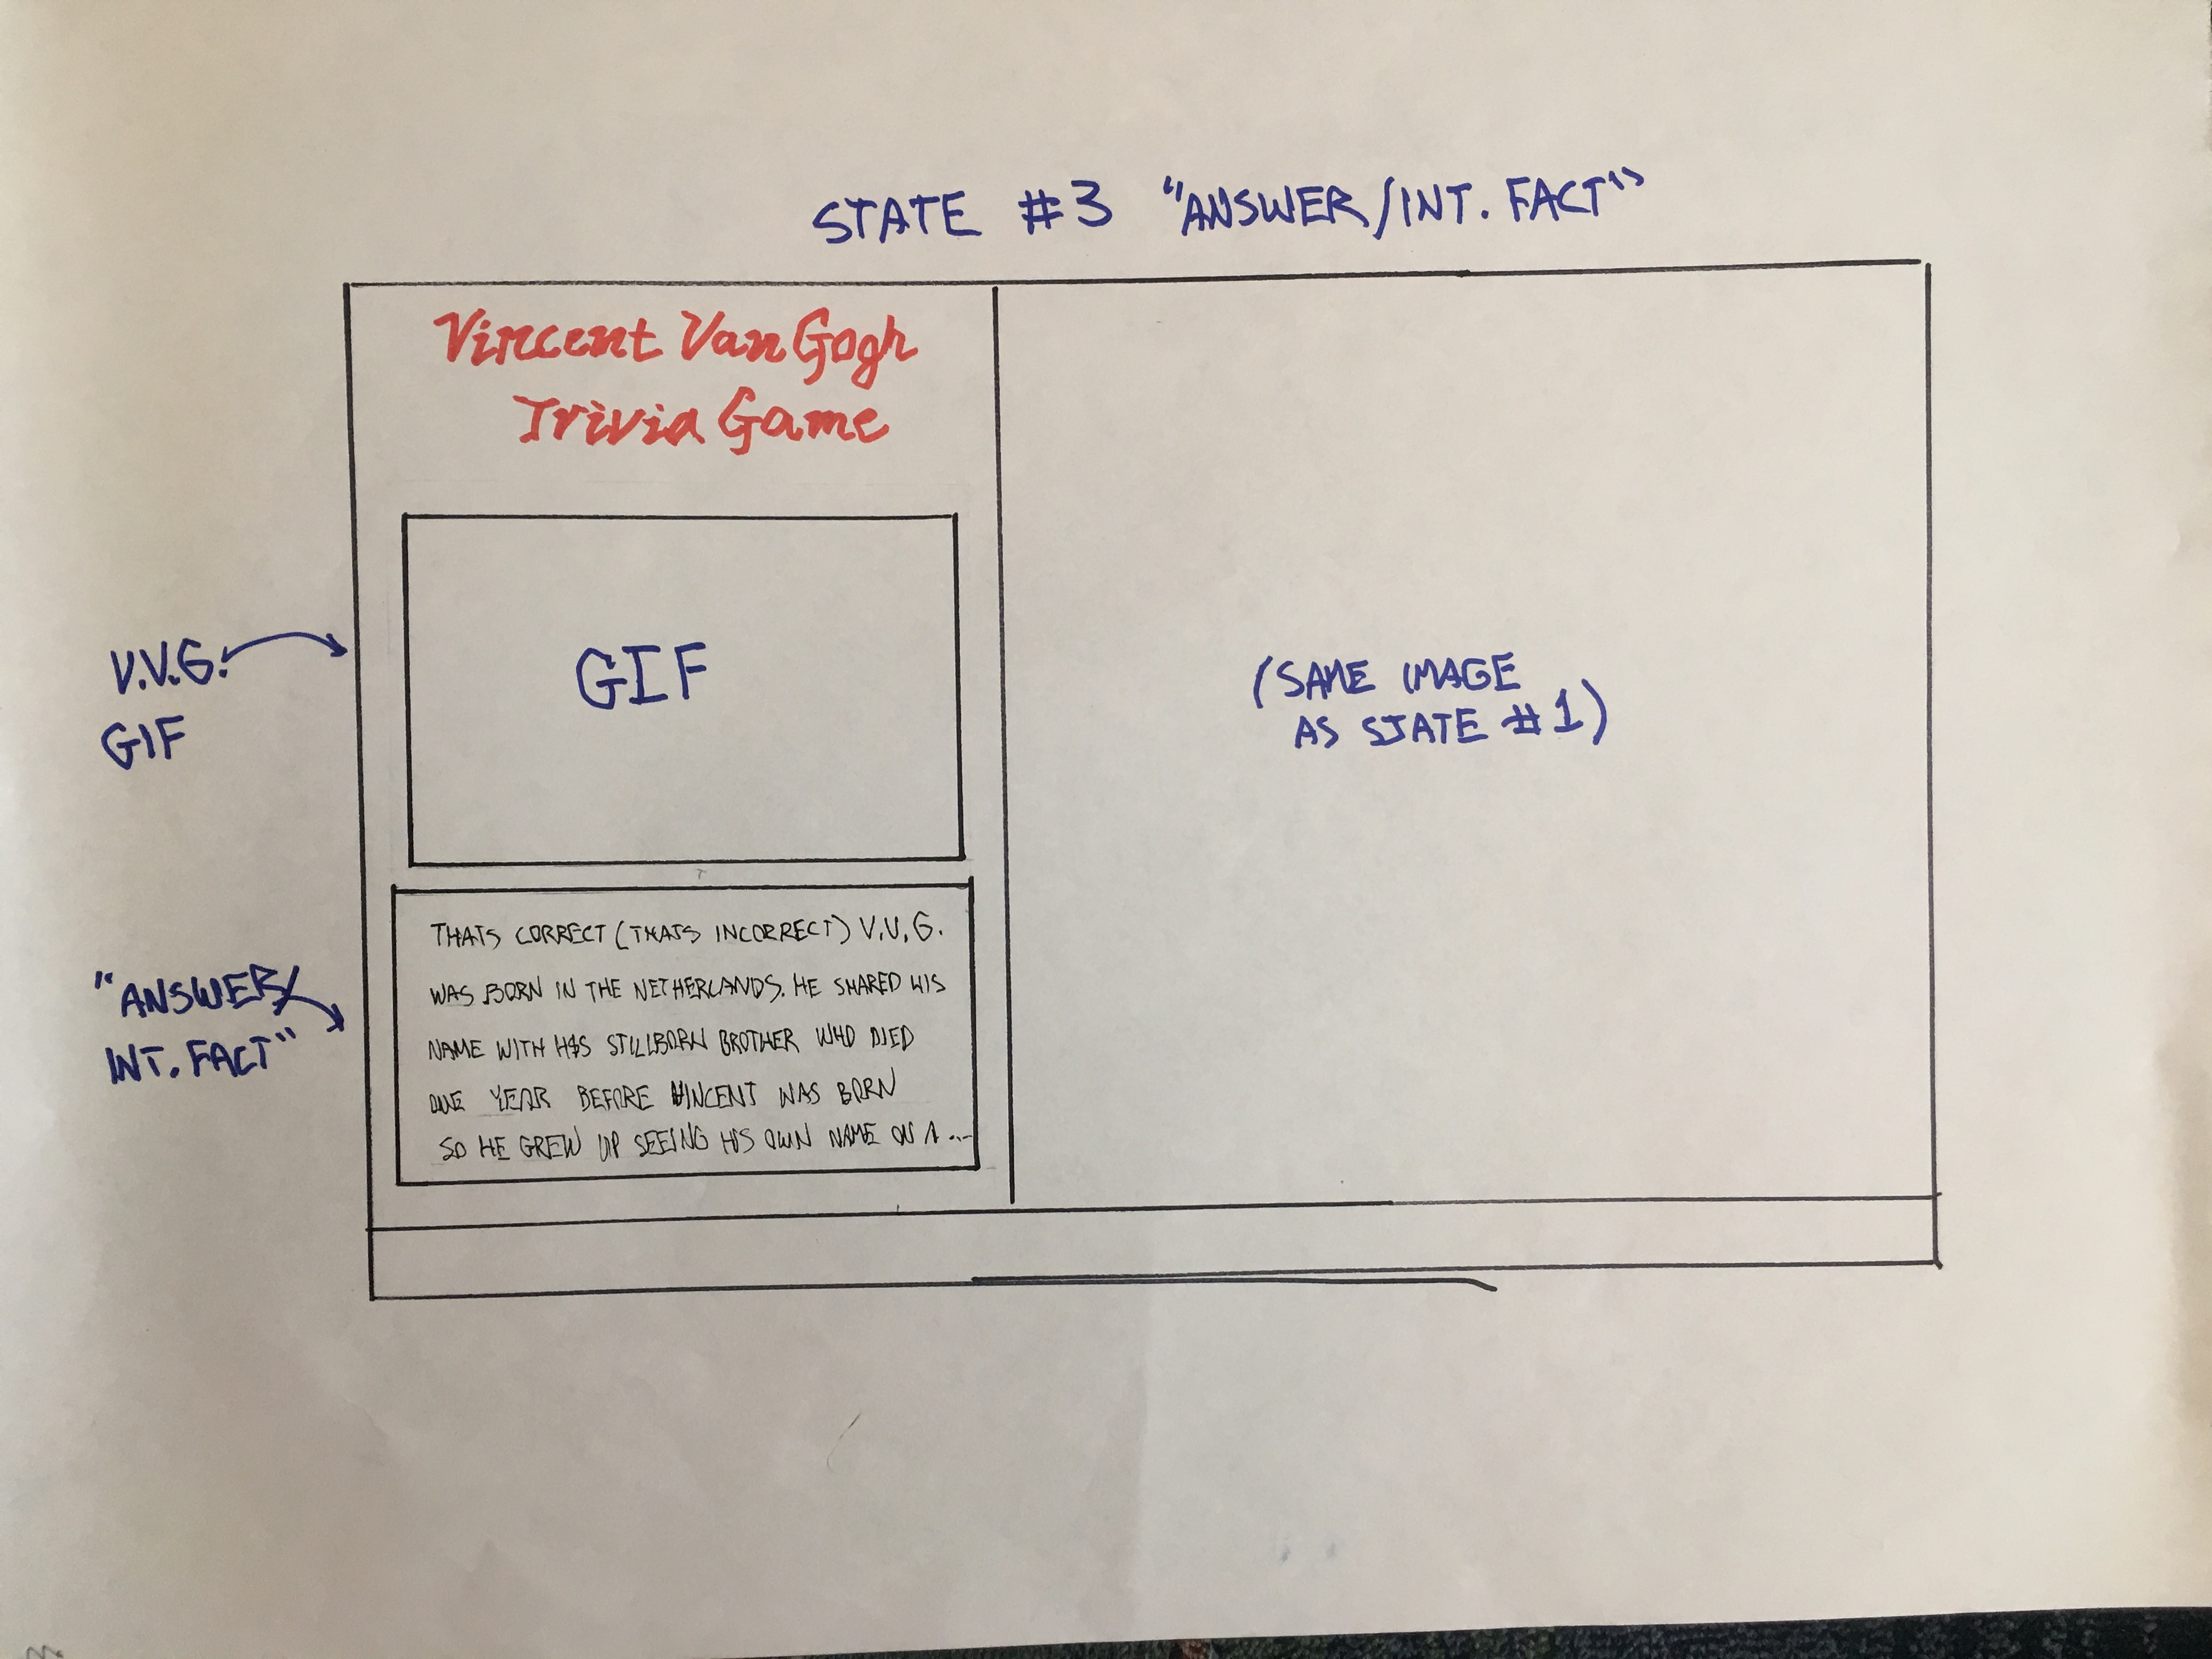 STATE #3 "ANSWER/INT. FACT"
Vincent Van Gogh
Trivia Game
V.V.G.
GIF
GIF
(SAME IMAGE
AS STATE #1)
"ANSWER/
INT. FACT"
THATS CORRECT (THATS INCORRECT) V.V.G.
WAS BORN IN THE NETHERLANDS. HE SHARED HIS
NAME WITH HIS STILLBORN BROTHER WHO DIED
ONE YEAR BEFORE VINCENT WAS BORN
SO HE GREW UP SEEING HIS OWN NAME ON A ...